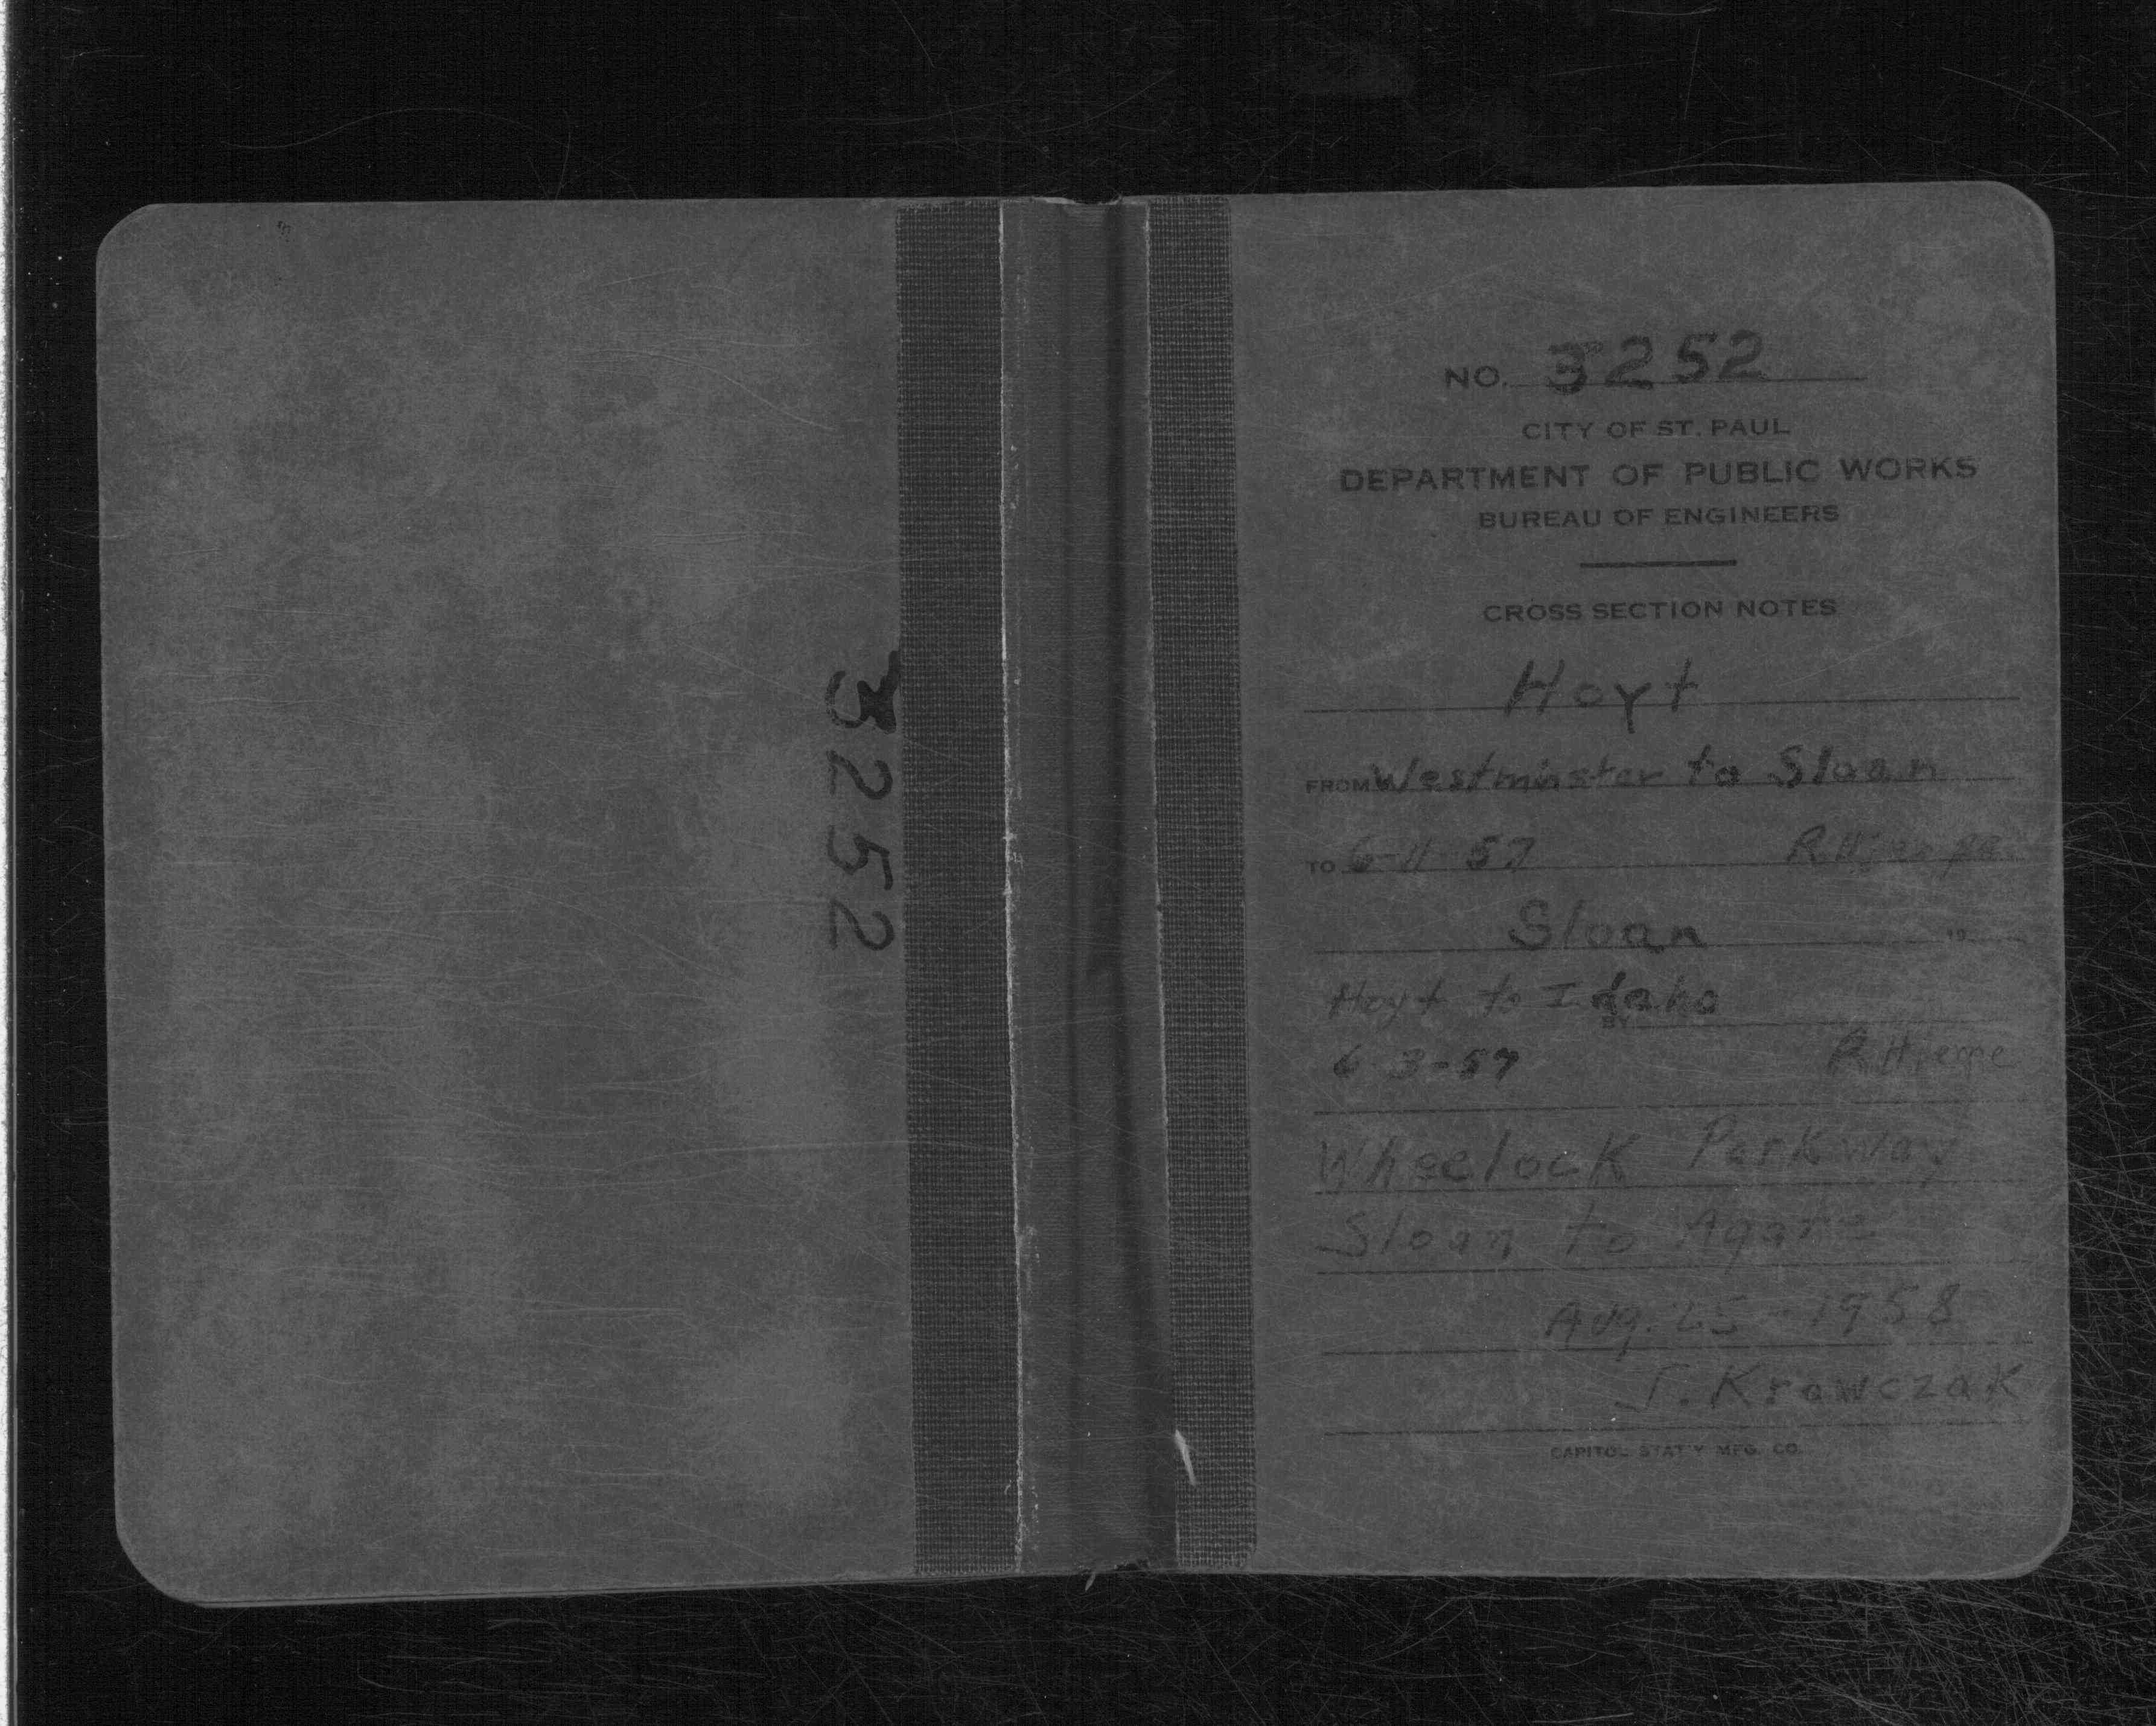 3252
NO. 3252
CITY OF ST. PAUL
DEPARTMENT OF PUBLIC WORKS
BUREAU OF ENGINEERS
CROSS SECTION NOTES
Hoyt
FROM Westminster to Sloan
TO 6-11-57
Sloan 19
Hoyt to Idaho
BY
6-3-57
Wheelock Parkway
Sloan to Agate
Aug. 25-1958
J. Krawczak
CAPITOL STAT'Y MFG. CO.